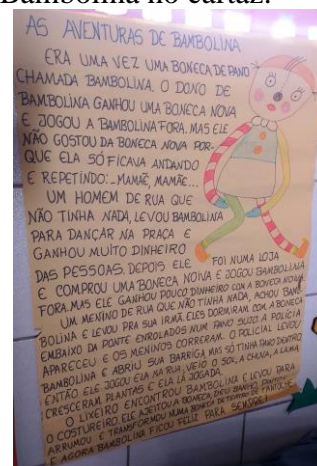 Bambolina no cartaz.
AS AVENTURAS DE BAMBOLINA
ERA UMA VEZ UMA BONECA DE PANO
CHAMADA BAMBOLINA. O DONO DE
BAMBOLINA GANHOU UMA BONECA NOVA
E JOGOU A BAMBOLINA FORA. MAS ELE
NÃO GOSTOU DA BONECA NOVA POR-
QUE ELA SÓ FICAVA ANDANDO
E REPETINDO: - MAMÃE, MAMÃE...
UM HOMEM DE RUA QUE
NÃO TINHA NADA, LEVOU BAMBOLINA
PARA DANÇAR NA PRAÇA E
GANHOU MUITO DINHEIRO
DAS PESSOAS. DEPOIS ELE FOI NUMA LOJA
E COMPROU UMA BONECA NOVA E JOGOU BAMBOLINA
FORA. MAS ELE GANHOU POUCO DINHEIRO COM A BONECA NOVA.
UM MENINO DE RUA QUE NÃO TINHA NADA, ACHOU BAM-
BOLINA E LEVOU PRA SUA IRMÃ. ELES DORMIRAM COM A BONECA
EMBAIXO DA PONTE ENROLADOS NUM PANO SUJO. A POLÍCIA
APARECEU E OS MENINOS CORRERAM. O POLICIAL LEVOU
BAMBOLINA E ABRIU SUA BARRIGA, MAS SÓ TINHA PANO DENTRO
ENTÃO ELE JOGOU ELA NA RUA. VEIO O SOL, A CHUVA, A LAMA,
CRESCERAM PLANTAS E ELA LÁ JOGADA.
O LIXEIRO ENCONTROU BAMBOLINA E LEVOU PARA
O COSTUREIRO ELE AJEITOU A BONECA, DEU BANHO,
ARRUMOU E TRANSFORMOU NUMA BONECA DE TEATRO DE FANTOCHE
E AGORA BAMBOLINA FICOU FELIZ PARA SEMPRE!